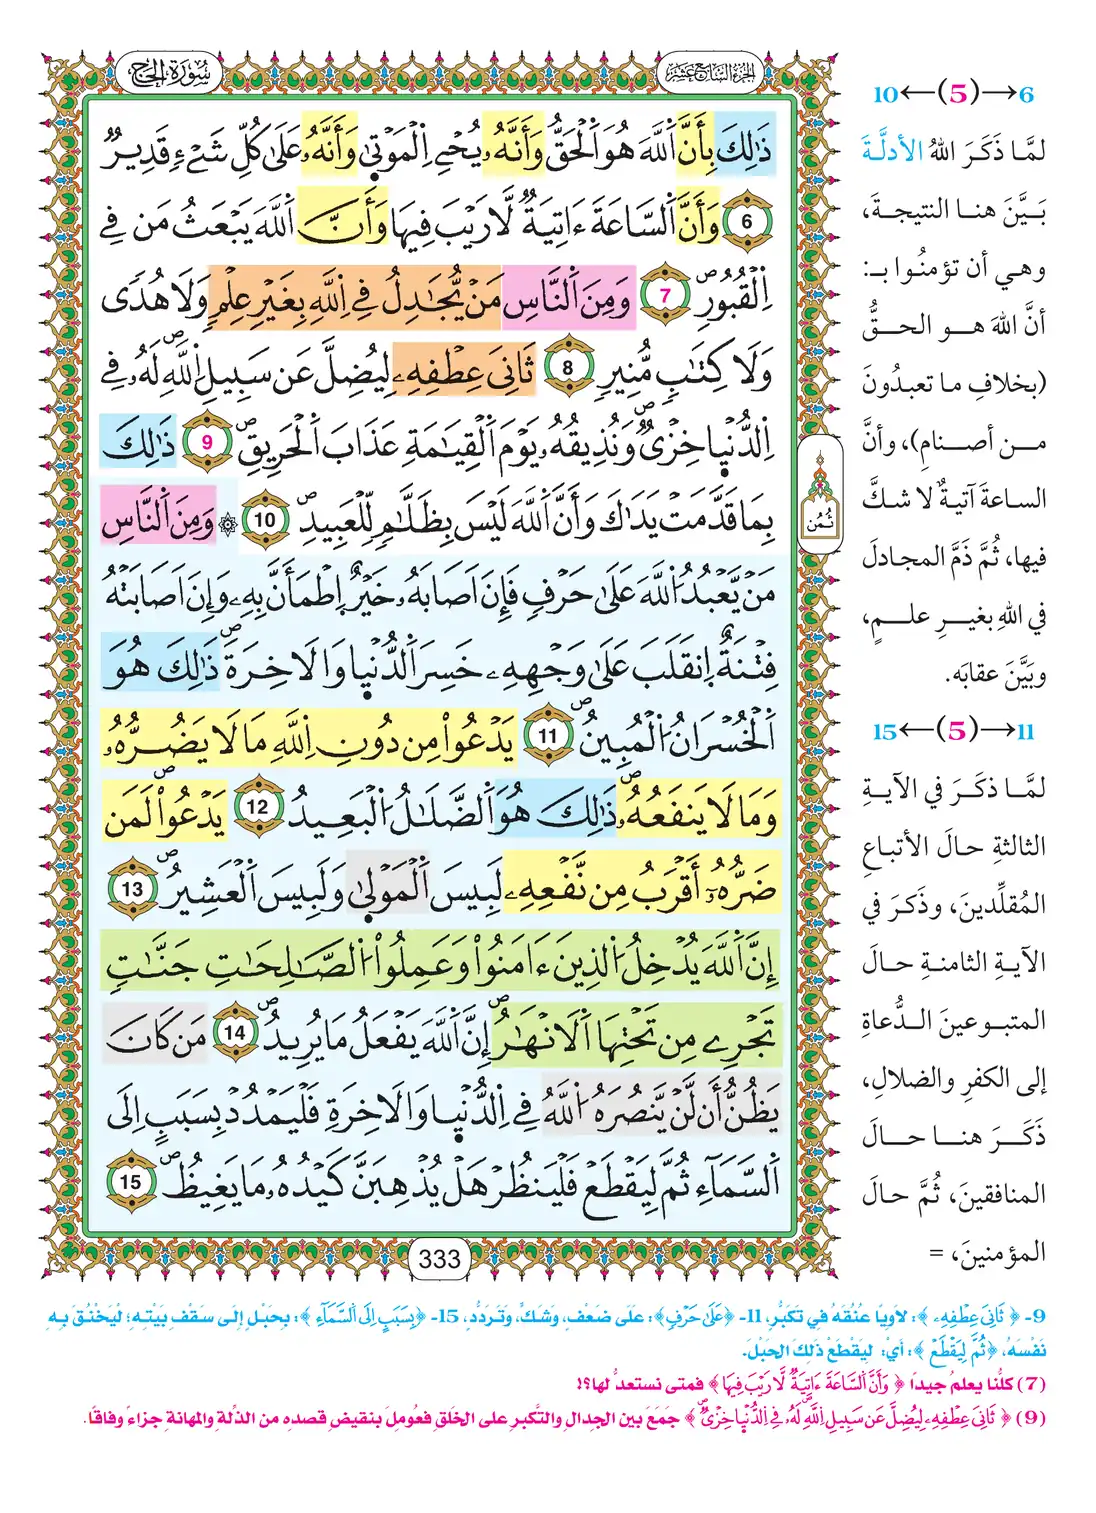 سُورَةُ الحَجِّ
الجُزْءُ السَّابِعَ عَشَرَ
ذَٰلِكَ بِأَنَّ اَ۬للَّهَ هُوَ اَ۬لْحَقُّ وَأَنَّهُۥ يُحْيِ اِ۬لْمَوْتَىٰ وَأَنَّهُۥ عَلَىٰ كُلِّ شَےْءٖ قَدِيرٞ
6 وَأَنَّ اَ۬لسَّاعَةَ ءَاتِيَةٞ لَّا رَيْبَ فِيهَا وَأَنَّ اَ۬للَّهَ يَبْعَثُ مَن فِے
اِ۬لْقُبُورِۖ 7 وَمِنَ اَ۬لنَّاسِ مَنْ يُّجَٰدِلُ فِے اِ۬للَّهِ بِغَيْرِ عِلْمٖ وَلَا هُدٗى
وَلَا كِتَٰبٖ مُّنِيرٖ 8 ثَانِيَ عِطْفِهِۦ لِيُضِلَّ عَن سَبِيلِ اِ۬للَّهِۖ لَهُۥ فِے
اِ۬لدُّنْيَا خِزْيٞۖ وَنُذِيقُهُۥ يَوْمَ اَ۬لْقِيَٰمَةِ عَذَابَ اَ۬لْحَرِيقِۖ 9 ذَٰلِكَ
بِمَا قَدَّمَتْ يَدَٰكَ وَأَنَّ اَ۬للَّهَ لَيْسَ بِظَلَّٰمٖ لِّلْعَبِيدِۖ 10 ۞ وَمِنَ اَ۬لنَّاسِ
ثُمُن
مَنْ يَّعْبُدُ اُ۬للَّهَ عَلَىٰ حَرْفٖ فَإِنَ اَصَابَهُۥ خَيْرٌ اِ۪طْمَأَنَّ بِهِۦ وَإِنَ اَصَابَتْهُ
فِتْنَةٌ اِ۪نقَلَبَ عَلَىٰ وَجْهِهِۦ خَسِرَ اَ۬لدُّنْيَا وَالَاخِرَةَۖ ذَٰلِكَ هُوَ
اَ۬لْخُسْرَانُ اُ۬لْمُبِينُۖ 11 يَدْعُواْ مِن دُونِ اِ۬للَّهِ مَا لَا يَضُرُّهُۥ
وَمَا لَا يَنفَعُهُۥۖ ذَٰلِكَ هُوَ اَ۬لضَّلَٰلُ اُ۬لْبَعِيدُۖ 12 يَدْعُواْ لَمَن
ضَرُّهُۥٓ أَقْرَبُ مِن نَّفْعِهِۦ لَبِيسَ اَ۬لْمَوْلَىٰ وَلَبِيسَ اَ۬لْعَشِيرُۖ 13
إِنَّ اَ۬للَّهَ يُدْخِلُ اُ۬لذِينَ ءَامَنُواْ وَعَمِلُواْ اُ۬لصَّٰلِحَٰتِ جَنَّٰتٖ
تَجْرِے مِن تَحْتِهَا اَ۬لَانْهَٰرُۖ إِنَّ اَ۬للَّهَ يَفْعَلُ مَا يُرِيدُۖ 14 مَن كَانَ
يَظُنُّ أَن لَّنْ يَّنصُرَهُ اُ۬للَّهُ فِے اِ۬لدُّنْيَا وَالَاخِرَةِ فَلْيَمْدُدْ بِسَبَبٍ اِلَى
اَ۬لسَّمَآءِ ثُمَّ لِيَقْطَعْ فَلْيَنظُرْ هَلْ يُذْهِبَنَّ كَيْدُهُۥ مَا يَغِيظُۖ 15
333
6→(5)←10
لمَّا ذَكَرَ اللهُ الأدلَّةَ
بَيَّنَ هنا النتيجةَ،
وهي أن تؤمنُوا بـ:
أنَّ اللهَ هو الحقُّ
(بخلافِ ما تعبدُونَ
من أصنامٍ)، وأنَّ
الساعةَ آتيةٌ لا شكَّ
فيها، ثُمَّ ذَمَّ المجادلَ
في اللهِ بغيرِ علمٍ،
وبَيَّنَ عقابَه.
11→(5)←15
لمَّا ذكَرَ في الآيةِ
الثالثةِ حالَ الأتباعِ
المُقلِّدينَ، وذكَرَ في
الآيةِ الثامنةِ حالَ
المتبوعينَ الدُّعاةِ
إلى الكفرِ والضلالِ،
ذَكَرَ هنا حالَ
المنافقينَ، ثُمَّ حالَ
المؤمنينَ، =
9- ﴿ثَانِيَ عِطْفِهِۦ﴾: لَاوِيًا عُنُقَهُ فِي تَكَبُّرٍ، 11- ﴿عَلَىٰ حَرْفٖ﴾: عَلَى ضَعْفٍ، وَشَكٍّ، وَتَرَدُّدٍ، 15- ﴿بِسَبَبٍ اِلَى اَ۬لسَّمَآءِ﴾: بِحَبْلٍ إِلَى سَقْفِ بَيْتِهِ؛ لِيَخْنُقَ بِهِ
نَفْسَهُ، ﴿ثُمَّ لِيَقْطَعْ﴾: أَيْ: لِيَقْطَعْ ذَلِكَ الحَبْلَ.
(7) كلُّنا يعلمُ جيدًا ﴿وَأَنَّ اَ۬لسَّاعَةَ ءَاتِيَةٞ لَّا رَيْبَ فِيهَا﴾ فمتى نستعدُّ لها؟!
(9) ﴿ثَانِيَ عِطْفِهِۦ لِيُضِلَّ عَن سَبِيلِ اِ۬للَّهِۖ لَهُۥ فِے اِ۬لدُّنْيَا خِزْيٞۖ﴾ جَمَعَ بين الجدالِ والتَّكبرِ على الخلقِ فعُومِلَ بنقيضِ قصدِه من الذِّلةِ والمهانةِ جزاءً وفاقًا.